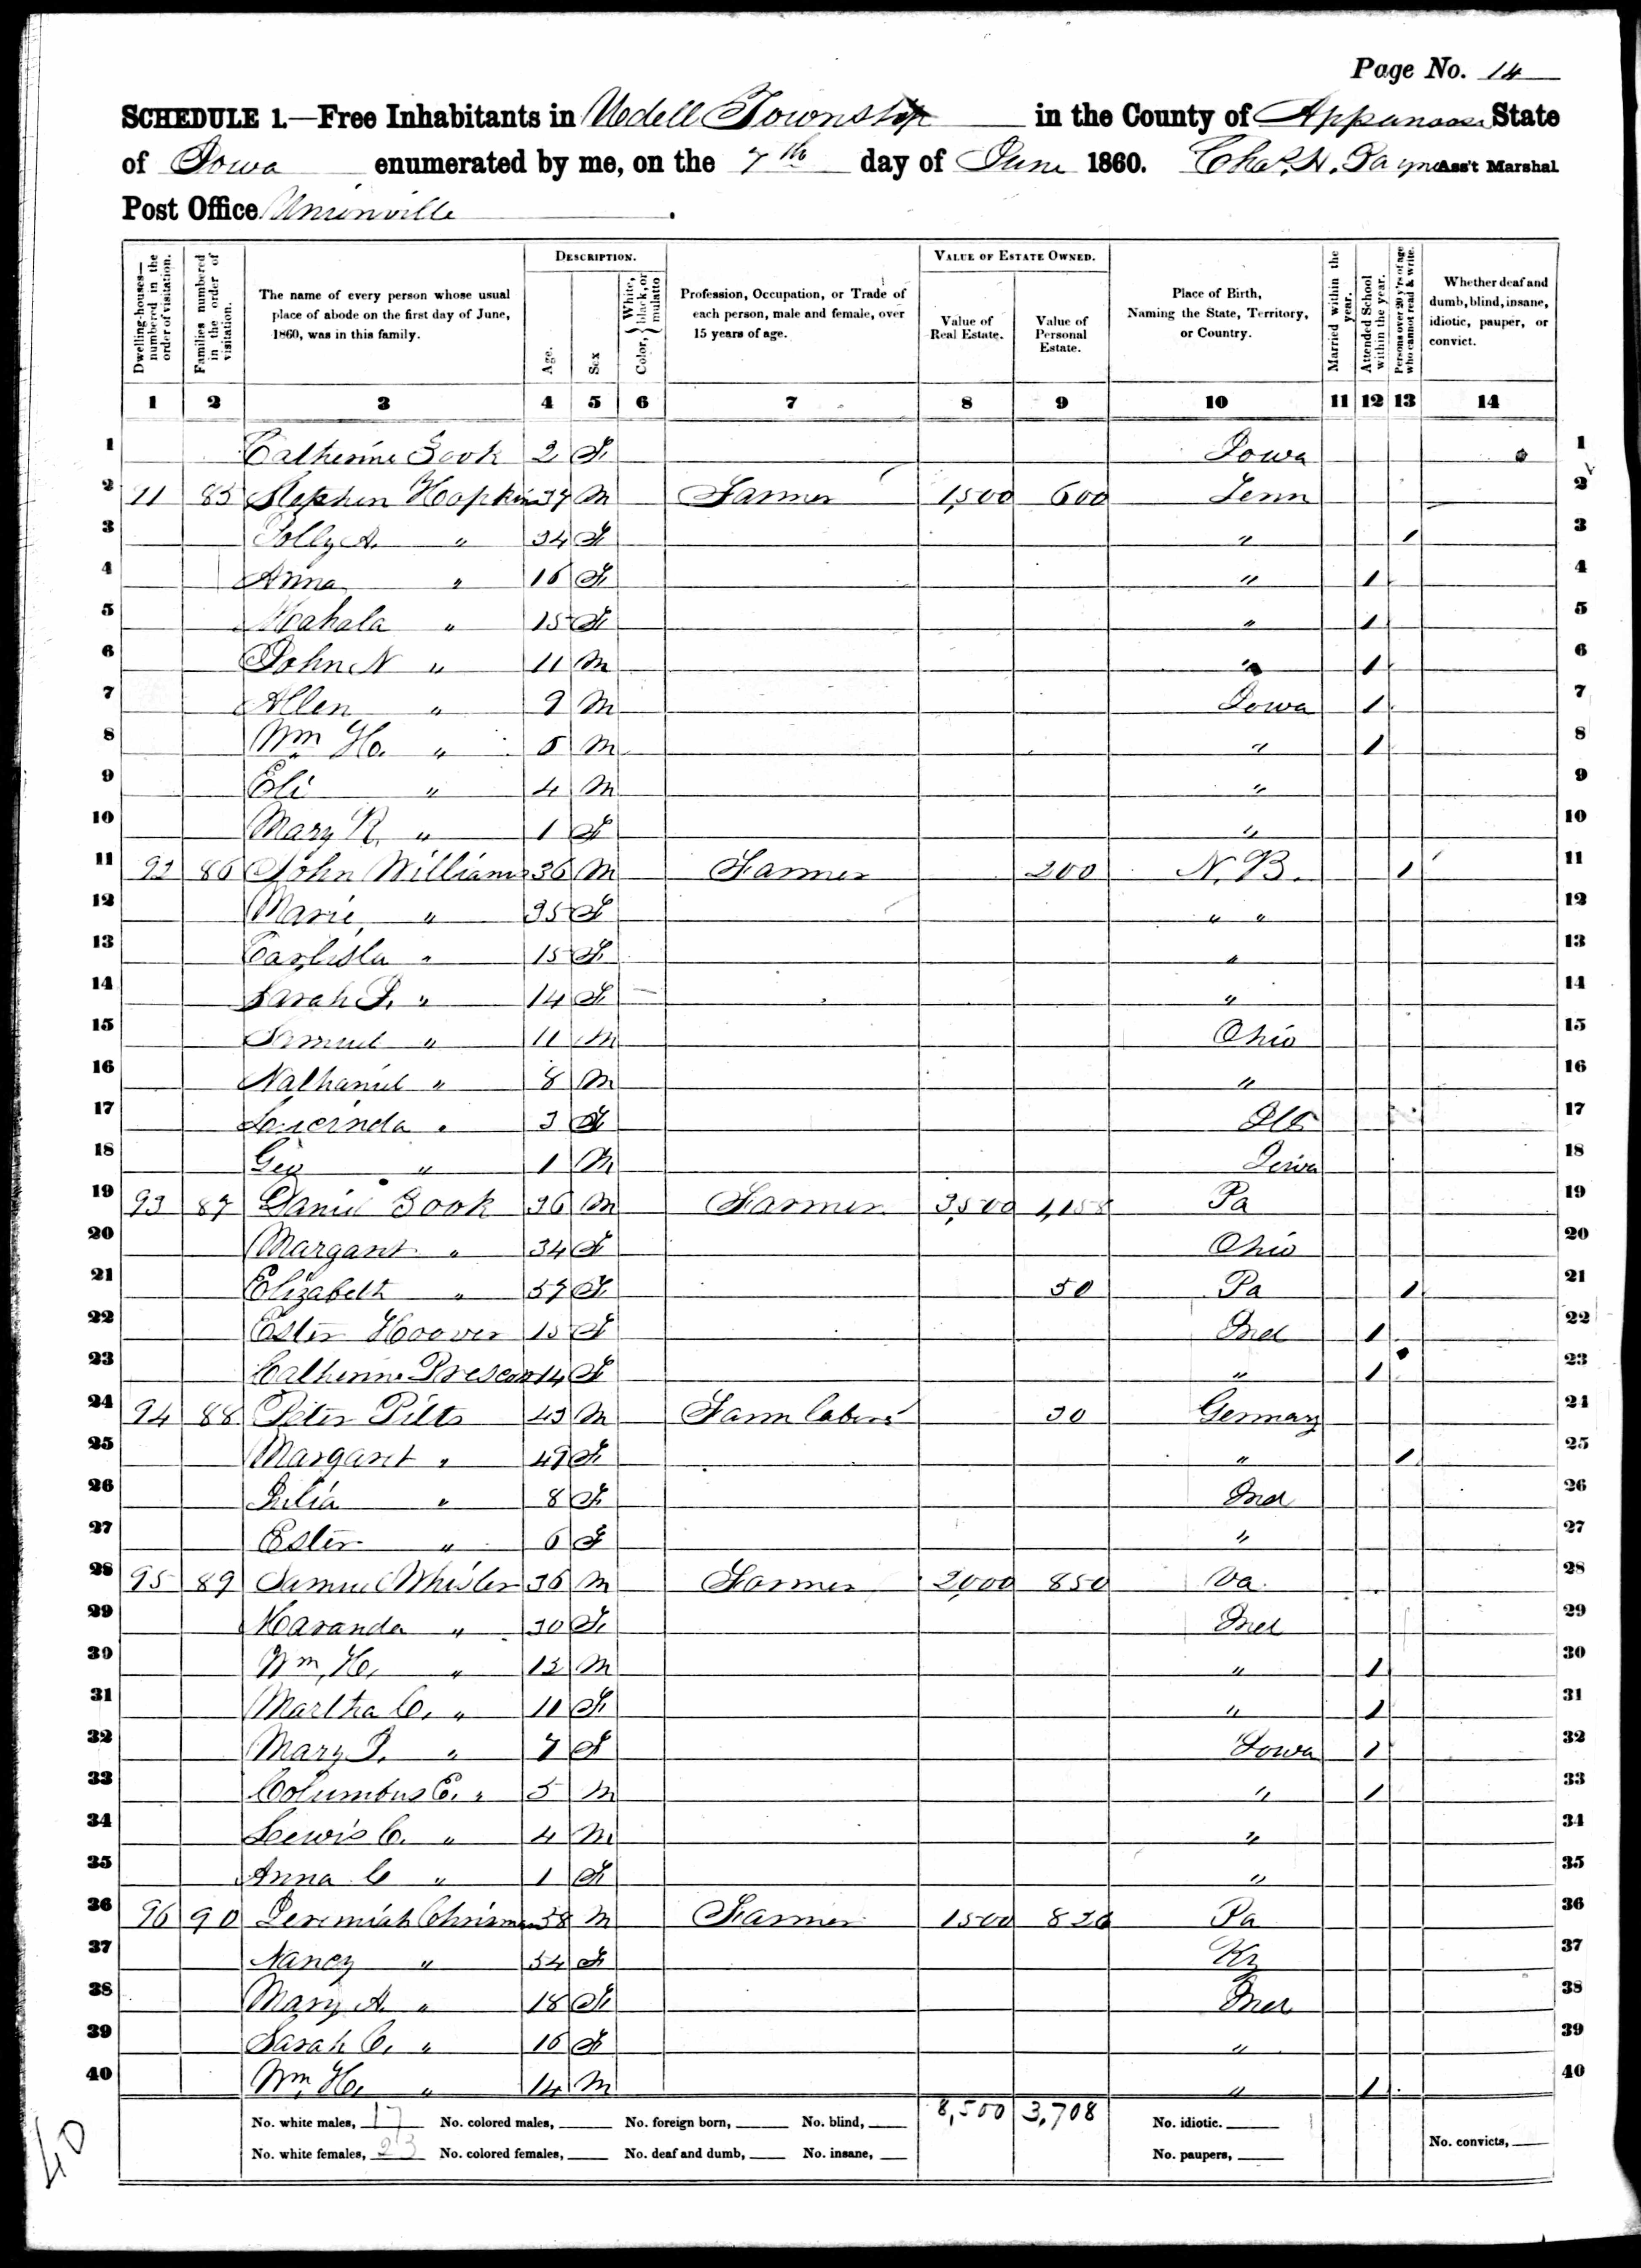 Page No. 14
SCHEDULE 1.—Free Inhabitants in Udell Township in the County of Appanoose State
of Iowa enumerated by me, on the 7th day of June 1860. Chas. H. Payne Ass't Marshal
Post Office Unionville.
Dwelling-houses—numbered in the order of visitation. Families numbered in the order of visitation. The name of every person whose usual place of abode on the first day of June, 1860, was in this family. DESCRIPTION. Age. Sex Color, { White, black, or mulatto Profession, Occupation, or Trade of each person, male and female, over 15 years of age. VALUE OF ESTATE OWNED. Value of Real Estate. Value of Personal Estate. Place of Birth, Naming the State, Territory, or Country. Married within the year. Attended School within the year. Persons over 20 y'rs of age who cannot read & write. Whether deaf and dumb, blind, insane, idiotic, pauper, or convict.
1 2 3 4 5 6 7 8 9 10 11 12 13 14
1 Catherine Zook 2 F Iowa 1
2 91 85 Stephen Hopkins 37 M Farmer 1,500 600 Tenn 2
3 Polly A. " 34 F " / 3
4 Anna " 16 F " / 4
5 Mahala " 15 F " / 5
6 John N " 11 M " / 6
7 Allen " 9 M Iowa / 7
8 Wm H. " 6 M " / 8
9 Eli " 4 M " 9
10 Mary R. " 1 F " 10
11 92 86 John Williams 36 M Farmer 200 N. B. / 11
12 Marie " 35 F " " 12
13 " 15 F " 13
14 Sarah J. " 14 F " 14
15 Samuel " 11 M Ohio 15
16 Nathaniel " 8 M " 16
17 Lucinda " 3 F Ills 17
18 Geo " 1 M Iowa 18
19 93 87 Daniel Zook 36 M Farmer 3,500 1,158 Pa 19
20 Margaret " 34 F Ohio 20
21 Elizabeth " 57 F 50 Pa / 21
22 Ester Hoover 15 F Ind / 22
23 Catherine 14 F " / 23
24 94 88 Peter Pilts 43 M Farm labor 30 Germany 24
25 Margaret " 49 F " / 25
26 Julia " 8 F Ind 26
27 Ester " 6 F " 27
28 95 89 Samuel Whisler 36 M Farmer 2,000 850 Va. 28
29 Maranda " 30 F Ind 29
30 Wm, H. " 12 M " / 30
31 Martha C. " 11 F " / 31
32 Mary J. " 7 F Iowa / 32
33 Columbus E. " 5 M " / 33
34 Lewis C. " 4 M " 34
35 Anna C " 1 F " 35
36 96 90 Jeremiah Chrisman 58 M Farmer 1500 820 Pa 36
37 Nancy " 54 F Ky 37
38 Mary A. " 18 F Ind 38
39 Sarah C. " 16 F " 39
40 Wm, H. " 14 M " / 40
No. white males, 17 No. colored males, No. foreign born, No. blind, 8,500 3,708 No. idiotic.
No. white females, 23 No. colored females, No. deaf and dumb, No. insane, No. paupers, No. convicts,
40